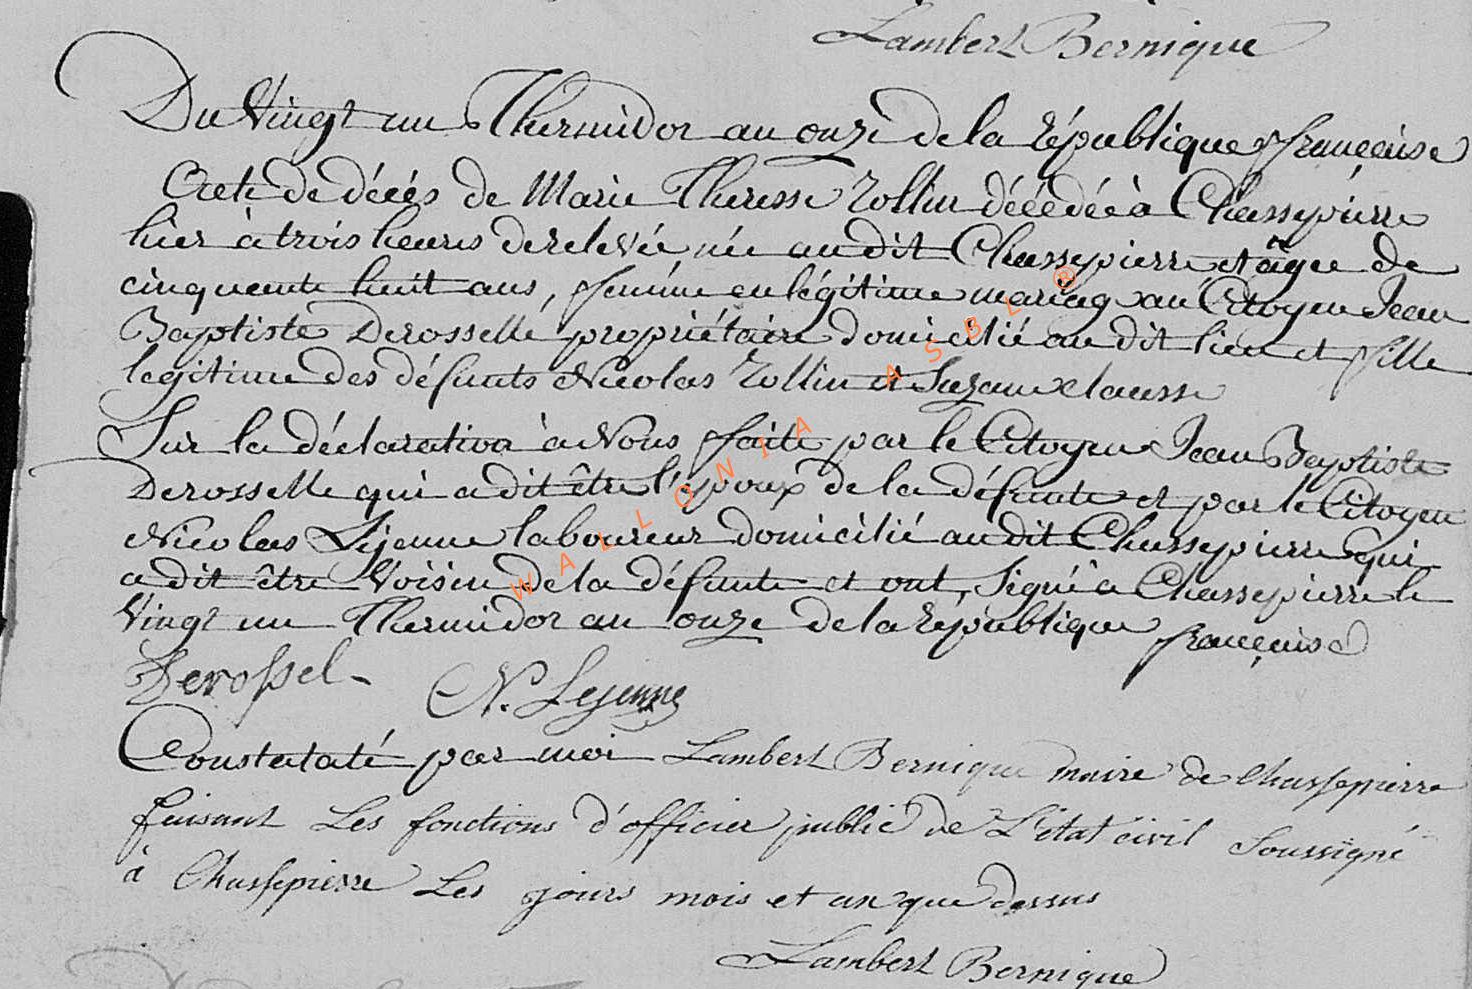 Lambert Bernique
Du Vingt un Thermidor an onze de la République française
Acte de décés de Marie Theresse Rollin décédée à Chassepierre
hier à trois heures de relevée née au dit Chassepierre et âgée de
cinquante huit ans, femme en légitime mariag au Citoyen Jean
Baptiste Derosselle propriétaire domicilié au dit lieu et fille
legitime des défunts Nicolas Rollin et Suzan Clausse
Sur la déclaration à Nous faite par le Citoyen Jean Baptiste
Derosselle qui a dit être l'époux de la défunte et par le Citoyen
Nicolas Lejeune laboureur domicilié au dit Chassepierre qui
a dit être Voisin de la défunte et ont Signé à Chassepierre le
Vingt un Thermidor an onze de la République française
Derossel N. Lejeune
Constataté par moi Lambert Bernique maire de Chassepierre
faisant Les fonctions d'officier public de L'état civil Soussigné
à Chassepierre Les jours mois et an que dessus
Lambert Bernique
WALLONIA ASBL ®